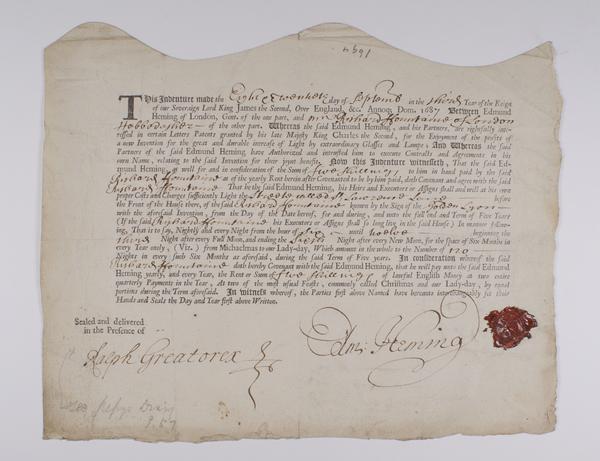 1694
This Indenture made the Eight & twentieth day of Septemb in the third Year of the Reign
of our Sovereign Lord King James the Second, Over England, &c. Annoq; Dom. 1687 Between Edmund
Heming of London, Gent. of the one part, and Richard Hountaine of London
Habberdasher of the other part. Whereas the said Edmund Heming, and his Partners, are rightfully inte-
ressed in certain Letters Patents granted by his late Majesty King Charles the Second, for the Enjoyment of the profits of
a new Invention for the great and durable increase of Light by extraordinary Glasses and Lamps; And Whereas the said
Partners of the said Edmund Heming have Authorized and intrusted him to execute Contracts and Agreements in his
own Name, relating to the said Invention for their joynt benefit. Now this Indenture witnesseth, That the said Ed-
mund Heming, as well for and in consideration of the Sum of five shillings to him in hand paid by the said
Richard Hountaine as of the yearly Rent herein after Covenanted to be by him paid, doth Covenant and agree with the said
Richard Hountaine That he the said Edmund Heming, his Heirs and Executors or Assigns shall and will at his own
proper Costs and Charges sufficiently Light the Streete called St Lawrence Laine before
the Front of the House there, of the said Richard Hountaine known by the Sign of the Golden Lyon
with the aforesaid Invention, from the Day of the Date hereof, for and during, and unto the full end and Term of Five Years
(If the said Richard Hountaine his Executors or Assigns shall so long live in the said House) In manner follow-
ing, That is to say, Nightly and every Night from the hour of six until twelve beginning the
third Night after every Full Moon, and ending the sixth Night after every New Moon, for the space of Six Months in
every Year only, (Viz.) from Michaelmas to our Lady-day, Which amount in the whole to the Number of 120
Nights in every such Six Months as aforesaid, during the said Term of Five years. In consideration whereof the said
Richard Hountaine doth hereby Covenant with the said Edmund Heming, that he will pay unto the said Edmund
Heming yearly, and every Year, the Rent or Sum of five shillings of lawful English Money at two entire
quarterly Payments in the Year, At two of the most usual Feasts, commonly called Christmas and our Lady-day, by equal
portions during the Term aforesaid. In witness whereof, the Parties first above Named have hereunto interchangeably set their
Hands and Seals the Day and Year first above Written.
Sealed and delivered
in the Presence of
Ralph Greatorex
Edm: Heming
See Pepys Diary